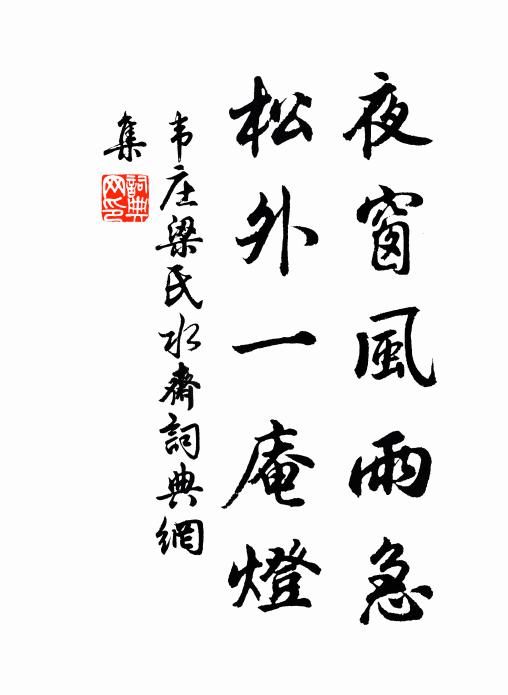 夜窗風雨急
松外一庵燈
韦庄梁氏水齋詞典網
集
詞典
网印